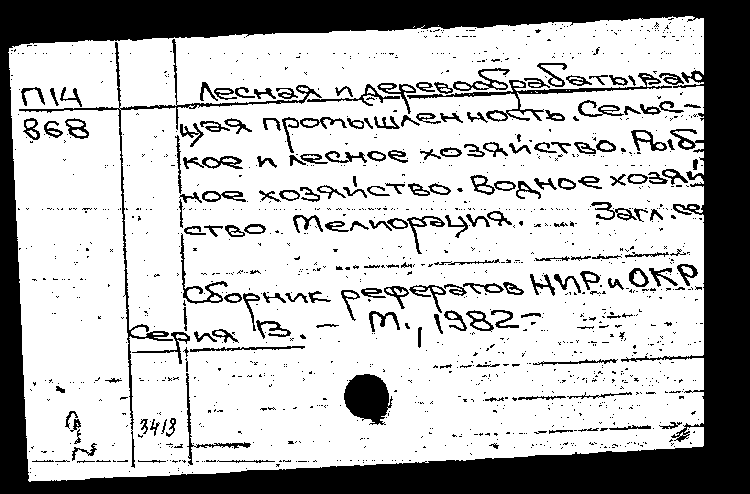 П14 Лесная и деревообрабатываю
868 щая промышленность. Сельс-
кое и лесное хозяйство. Рыб-
ное хозяйство. Водное хозяй
ство. Мелиорация. Загл. се
Сборник рефератов НИР и ОКР
Серия В. – М., 1982-
29
3413